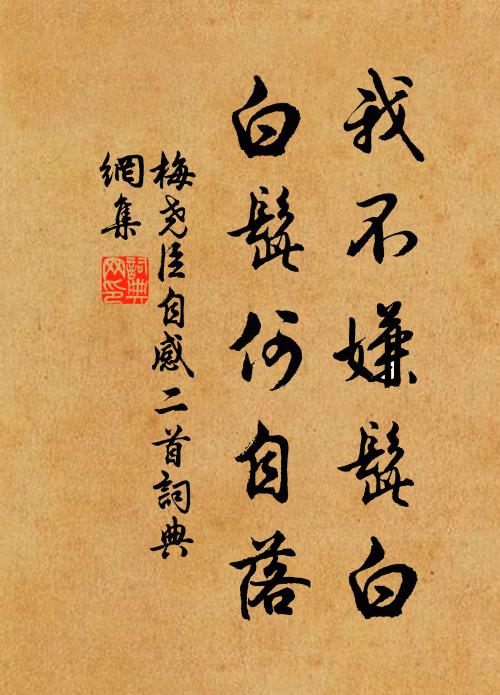 我不嫌髭白
白髭何自落
梅尧臣自感二首詞典
網集
詞典
网印